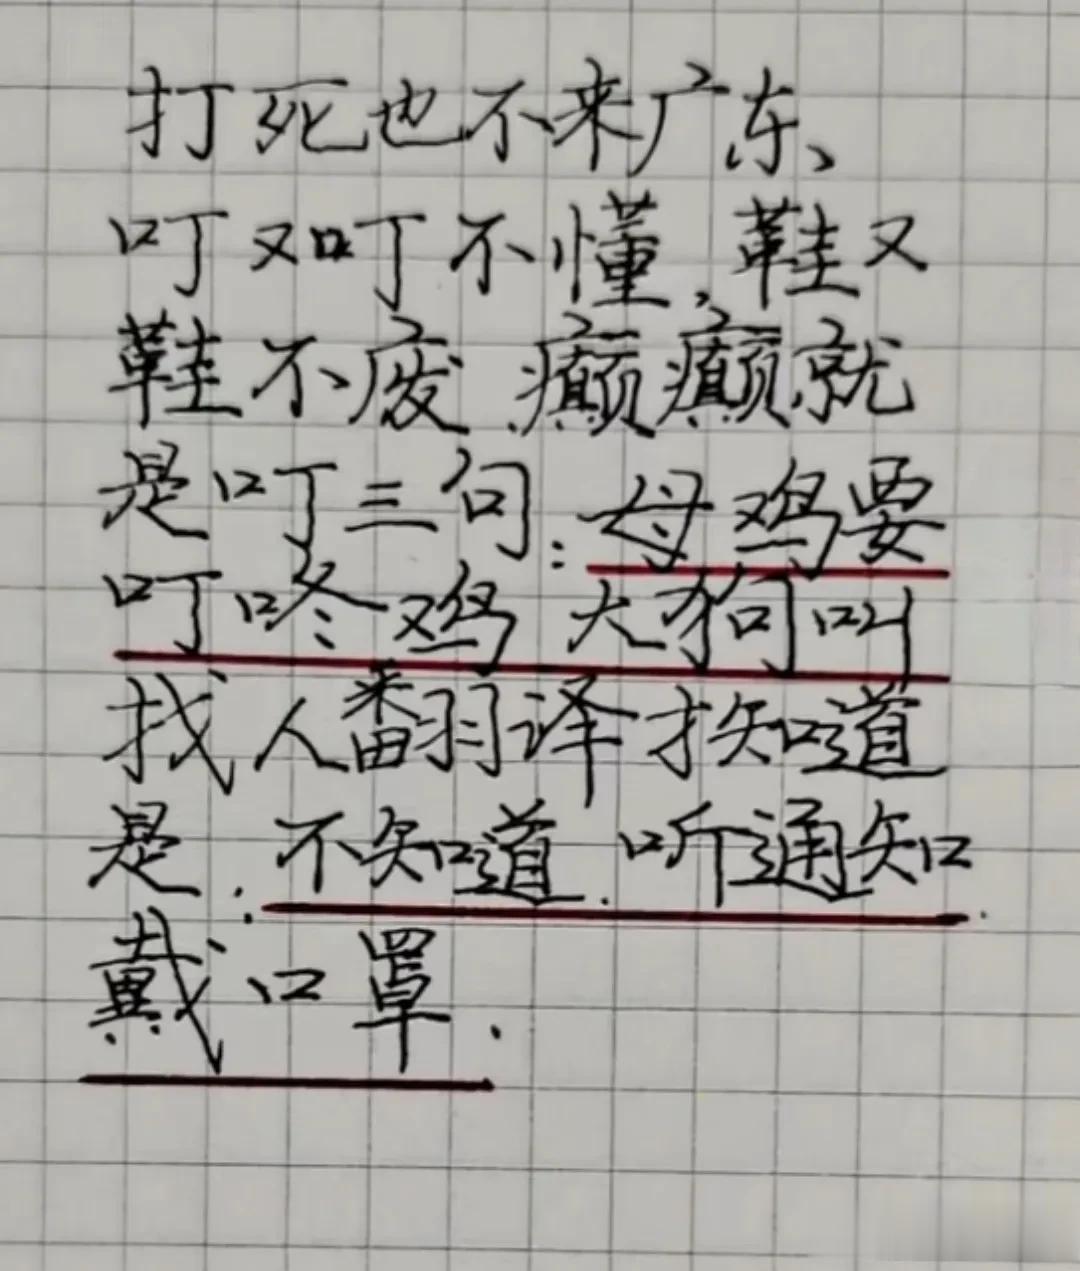 打死也不来广东、
叮又叮不懂，鞋又
鞋不废.癫癫就
是叮三句:母鸡要
叮咚鸡 大狗叫
找人翻译才知道
是:不知道.听通知.
戴口罩.